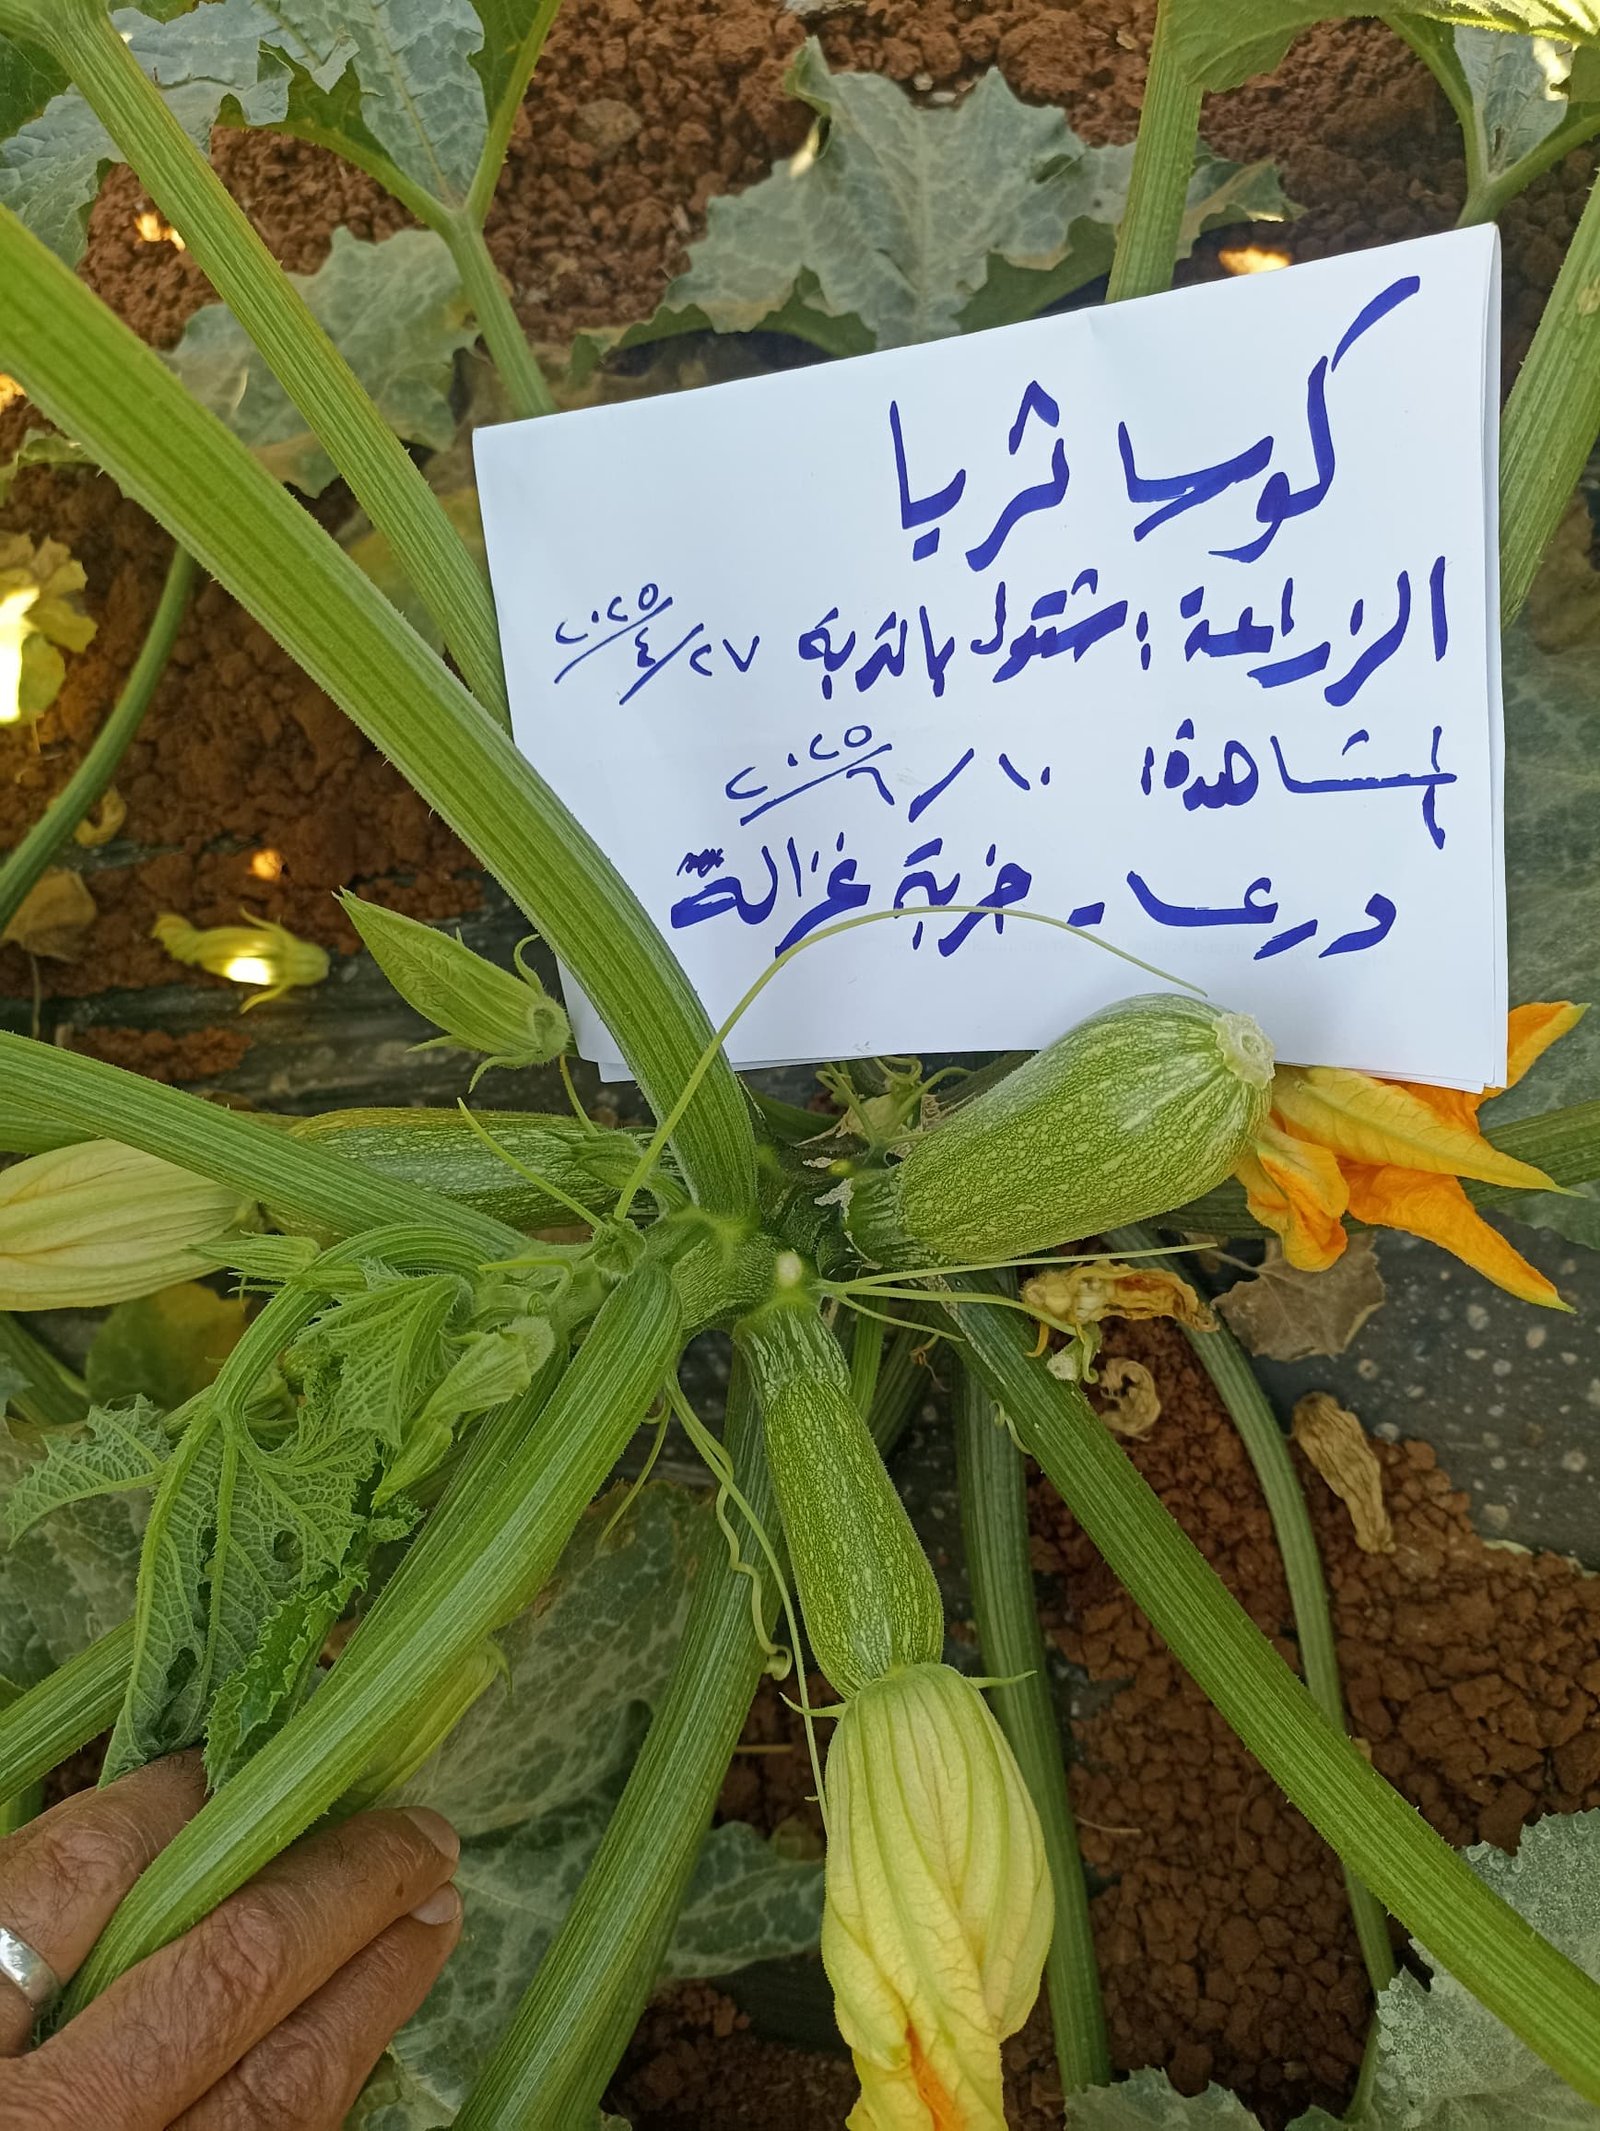 كوسا ثريا
الزراعة : شتول بالتربة ٢٧/٤/٢٠٢٥
المشاهدة : ١٠/٦/٢٠٢٥
درعا - خربة غزالة